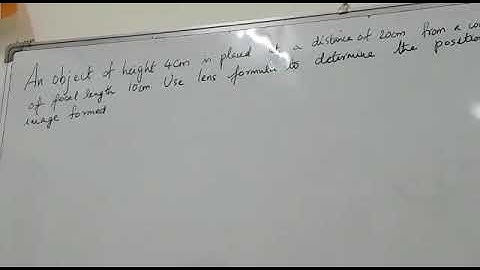 An object of height 4cm is placed at a distance of 20cm from a
of focal length 10cm Use lens formula to determine the position
image formed